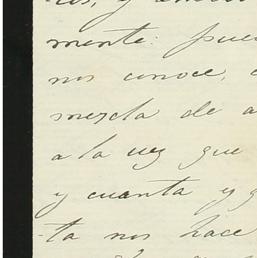 mente: pues
nos conoce,
mezcla de a
a la vez que
y cuanta y g
ta nos hace